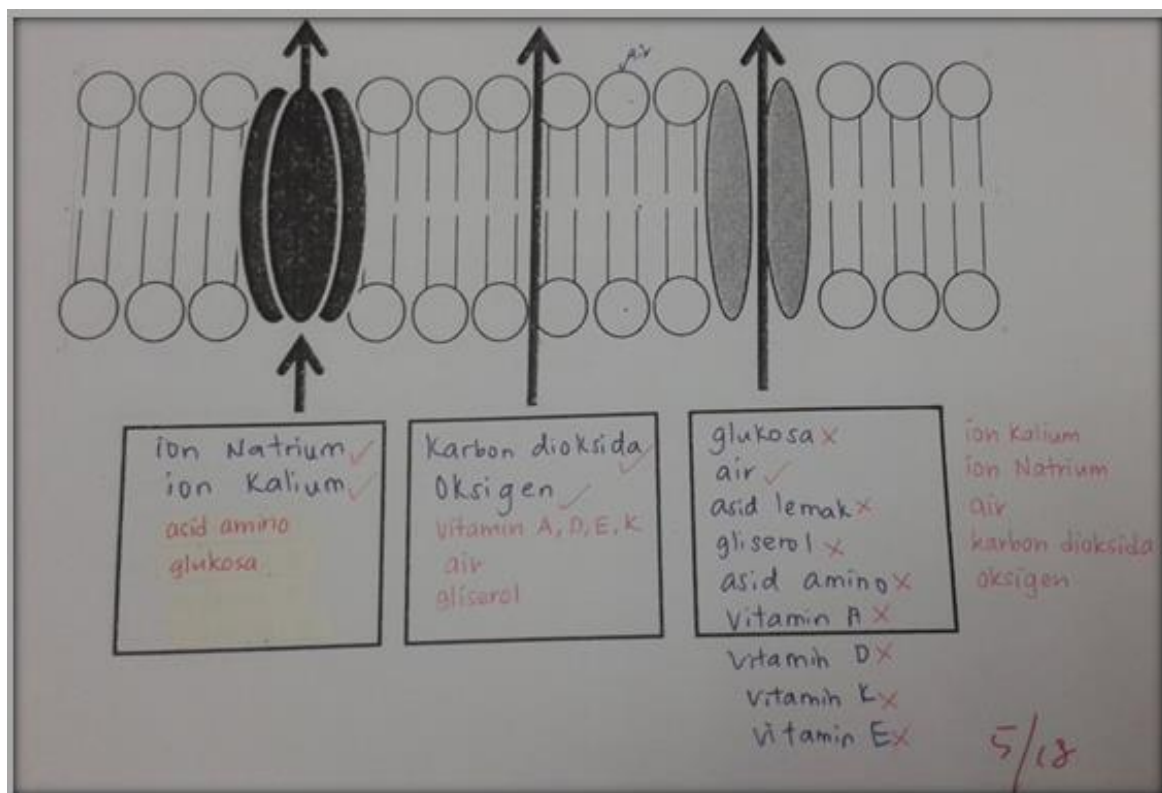 air
ion Natrium ✓
ion Kalium ✓
acid amino
glukosa
Karbon dioksida ✓
Oksigen ✓
vitamin A, D, E, K
air
gliserol
glukosa x
air ✓
asid lemak x
gliserol x
asid amino x
vitamin A x
vitamin D x
vitamin K x
vitamin E x
ion Kalium
ion Natrium
air
karbon dioksida
oksigen
5/18